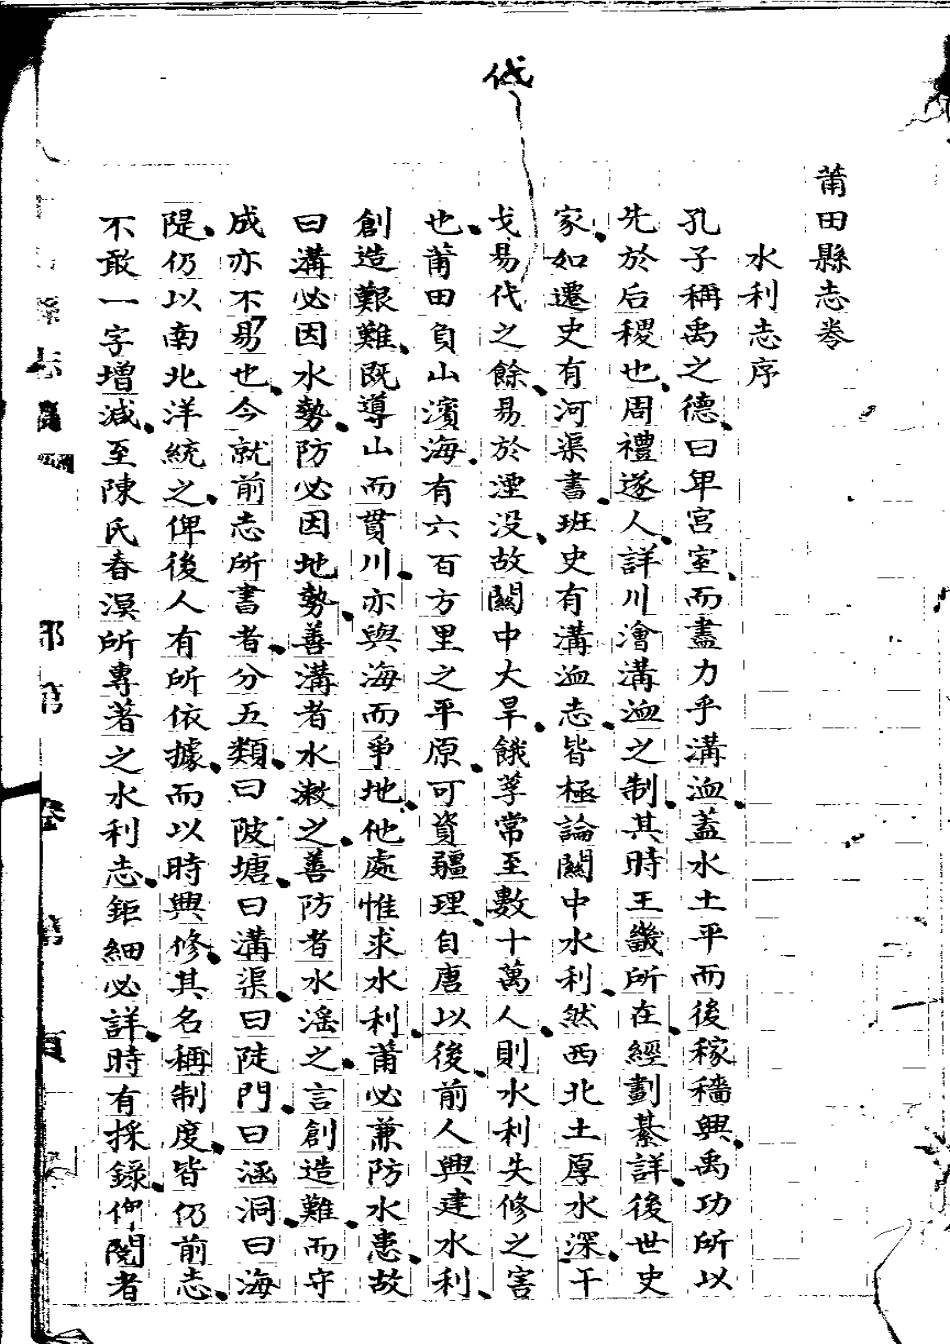 莆田縣志卷
水利志序
孔子稱禹之德、曰卑宮室、而盡力乎溝洫、蓋水土平而後稼穡興、禹功所以
先於后稷也、周禮遂人、詳川澮溝洫之制、其時王畿所在、經劃綦詳、後世史
家、如遷史有河渠書、班史有溝洫志、皆極論關中水利、然西北土厚水深、干
戈易代之餘、易於湮没、故關中大旱、餓莩常至數十萬人、則水利失修之害
也、莆田負山濱海、有六百方里之平原、可資疆理、自唐以後、前人興建水利、
創造艱難、既導山而貫川、亦與海而爭地、他處惟求水利、莆必兼防水患、故
曰溝必因水勢、防必因地勢、善溝者水漱之、善防者水淫之、言創造難、而守
成亦不易也、今就前志所書者、分五類、曰陂塘、曰溝渠、曰陡門、曰涵洞、曰海
隄、仍以南北洋統之、俾後人有所依據、而以時興修、其名稱制度、皆仍前志、
不敢一字增減、至陳氏春溟所專著之水利志、鉅細必詳、時有採錄、俾閱者
代